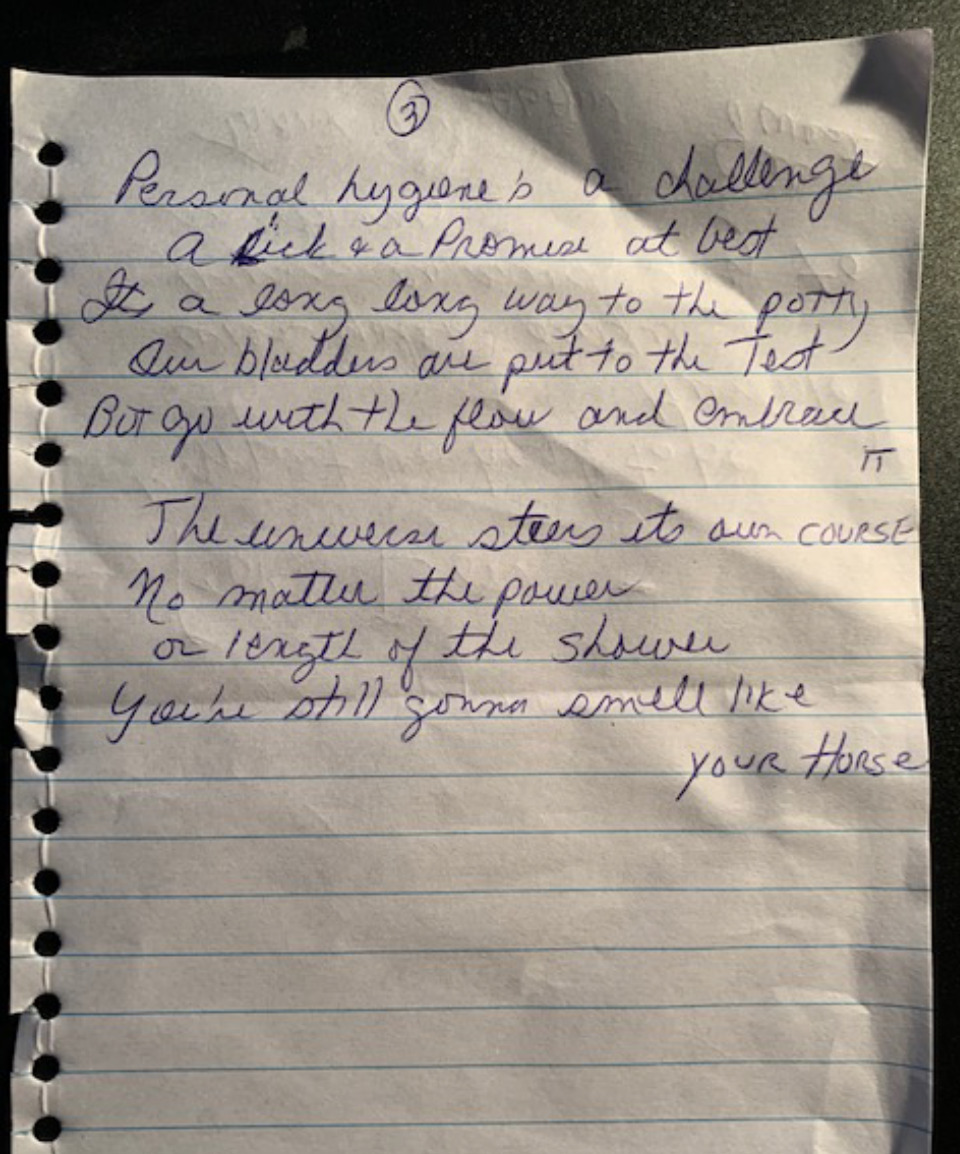 3
Personal hygiene's a challenge
a Lick & a Promise at best
Its a long long way to the potty
Our bladders are put to the Test
But go with the flow and embrace
IT
The universe steers its own COURSE
No matter the power
or length of the shower
You're still gonna smell like
YOUR Horse